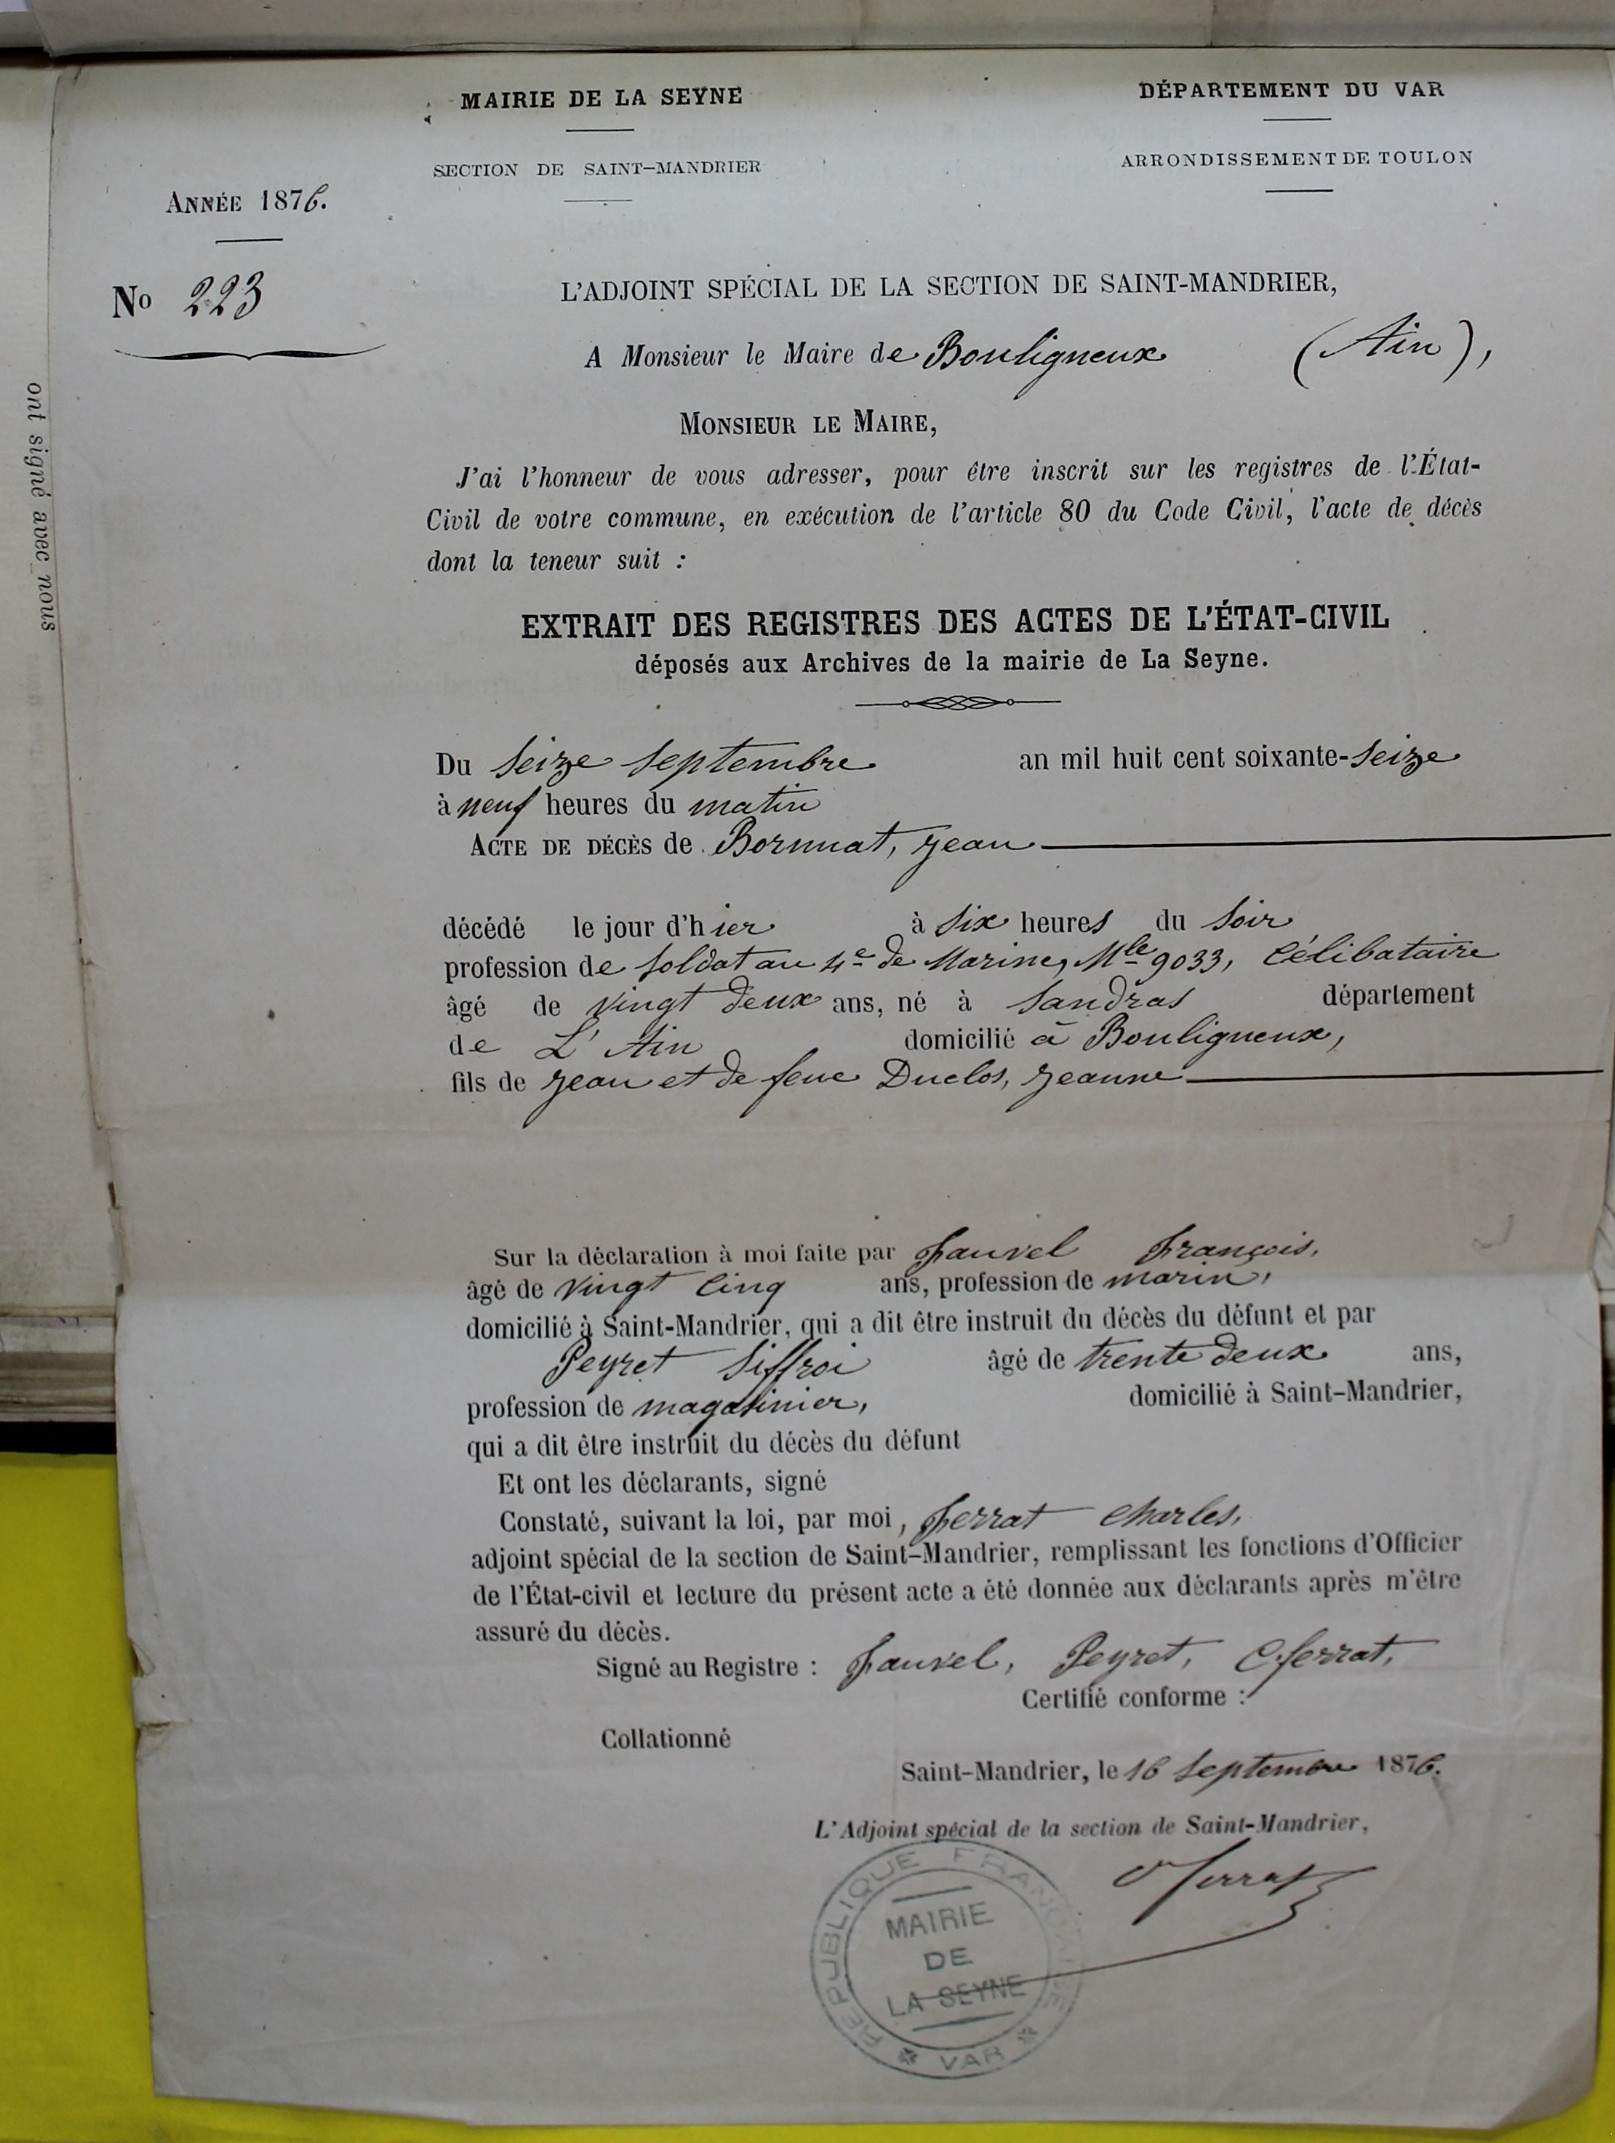 MAIRIE DE LA SEYNE
DÉPARTEMENT DU VAR
SECTION DE SAINT-MANDRIER
ARRONDISSEMENT DE TOULON
ANNÉE 1876.
No 223
L'ADJOINT SPÉCIAL DE LA SECTION DE SAINT-MANDRIER,
A Monsieur le Maire de Bouligneux (Ain),
MONSIEUR LE MAIRE,
J'ai l'honneur de vous adresser, pour être inscrit sur les registres de l'État-
Civil de votre commune, en exécution de l'article 80 du Code Civil, l'acte de décès
dont la teneur suit :
EXTRAIT DES REGISTRES DES ACTES DE L'ÉTAT-CIVIL
déposés aux Archives de la mairie de La Seyne.
Du Seize Septembre an mil huit cent soixante-Seize
à neuf heures du matin
ACTE DE DÉCÈS de Bornnat, Jean
décédé le jour d'hier à Six heures du Soir
profession de Soldat au 4e de Marine, Mle 9033, Célibataire
âgé de vingt deux ans, né à Sandras département
de L'Ain domicilié à Bouligneux,
fils de Jean et de feue Duclos, Jeanne
Sur la déclaration à moi faite par Fauvel François,
âgé de vingt Cinq ans, profession de marin,
domicilié à Saint-Mandrier, qui a dit être instruit du décès du défunt et par
Peyret Siffroi âgé de trente deux ans,
profession de magasinier, domicilié à Saint-Mandrier,
qui a dit être instruit du décès du défunt
Et ont les déclarants, signé
Constaté, suivant la loi, par moi, Ferrat Charles,
adjoint spécial de la section de Saint-Mandrier, remplissant les fonctions d'Officier
de l'État-civil et lecture du présent acte a été donnée aux déclarants après m'être
assuré du décès.
Signé au Registre : Fauvel, Peyret, C. Ferrat,
Certifié conforme :
Collationné
Saint-Mandrier, le 16 Septembre 1876.
L'Adjoint spécial de la section de Saint-Mandrier,
Ch Ferrat
RÉPUBLIQUE FRANÇAISE
MAIRIE
DE
LA SEYNE
* VAR *
ont signé avec nous